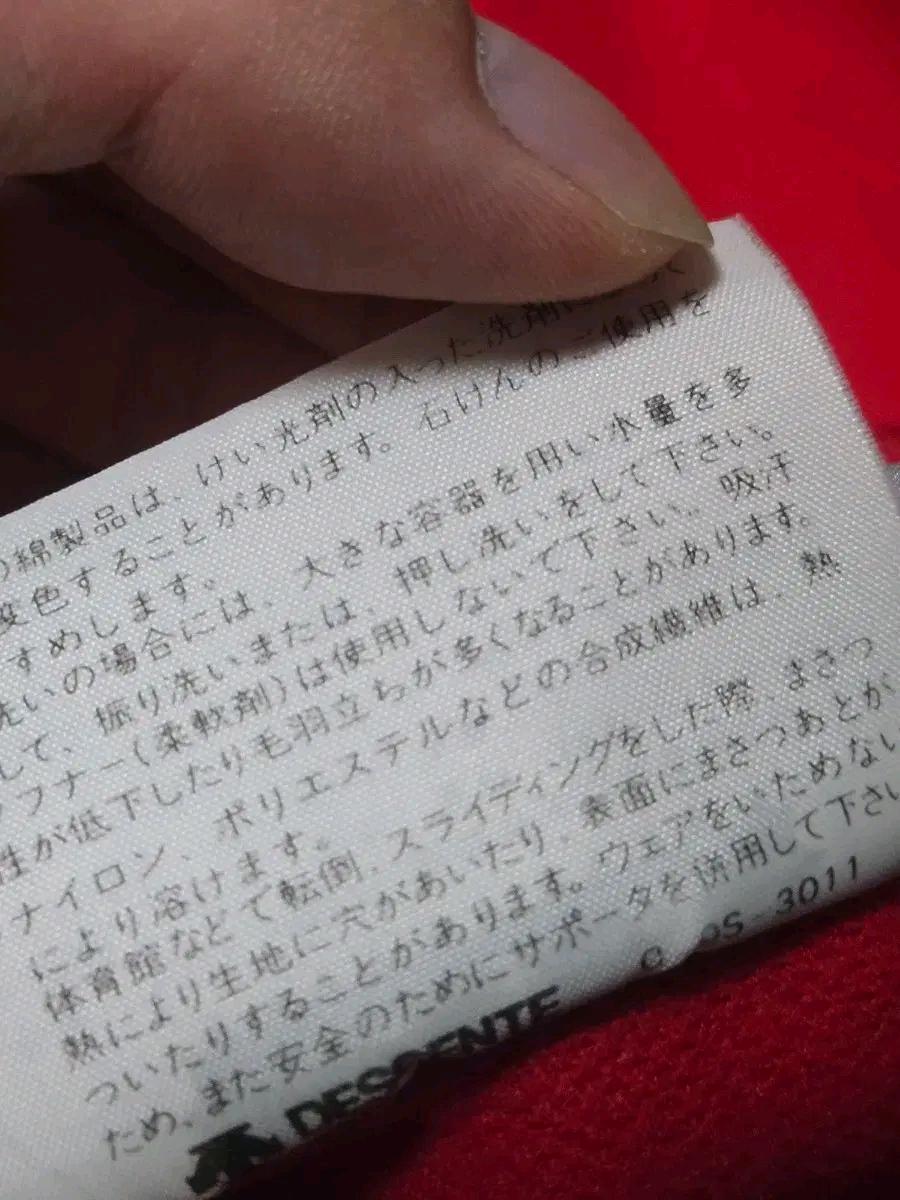 綿製品は、けい光剤の入った洗剤に
変色することがあります。石けんのご使用を
すすめします。
洗いの場合には、大きな容器を用い水量を多
して、振り洗いまたは、押し洗いをして下さい。
フナー(柔軟剤)は使用しないで下さい。吸汗
性が低下したり毛羽立ちが多くなることがあります。
ナイロン、ポリエステルなどの合成繊維は、熱
により溶けます。
体育館などで転倒、スライディングをした際、まさつ
熱により生地に穴があいたり、表面にまさつあとが
ついたりすることがあります。ウェアをいためない
ため、また安全のためにサポータを併用して下さい
DESCENTE
3011